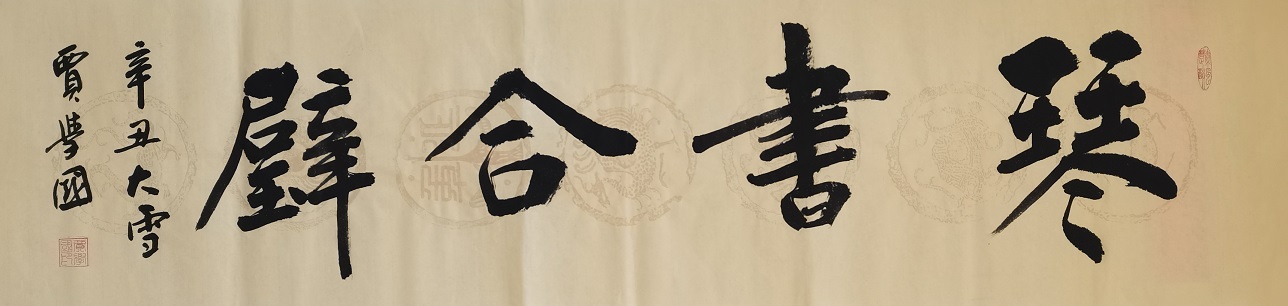 琴書合璧
辛丑大雪
賈學國